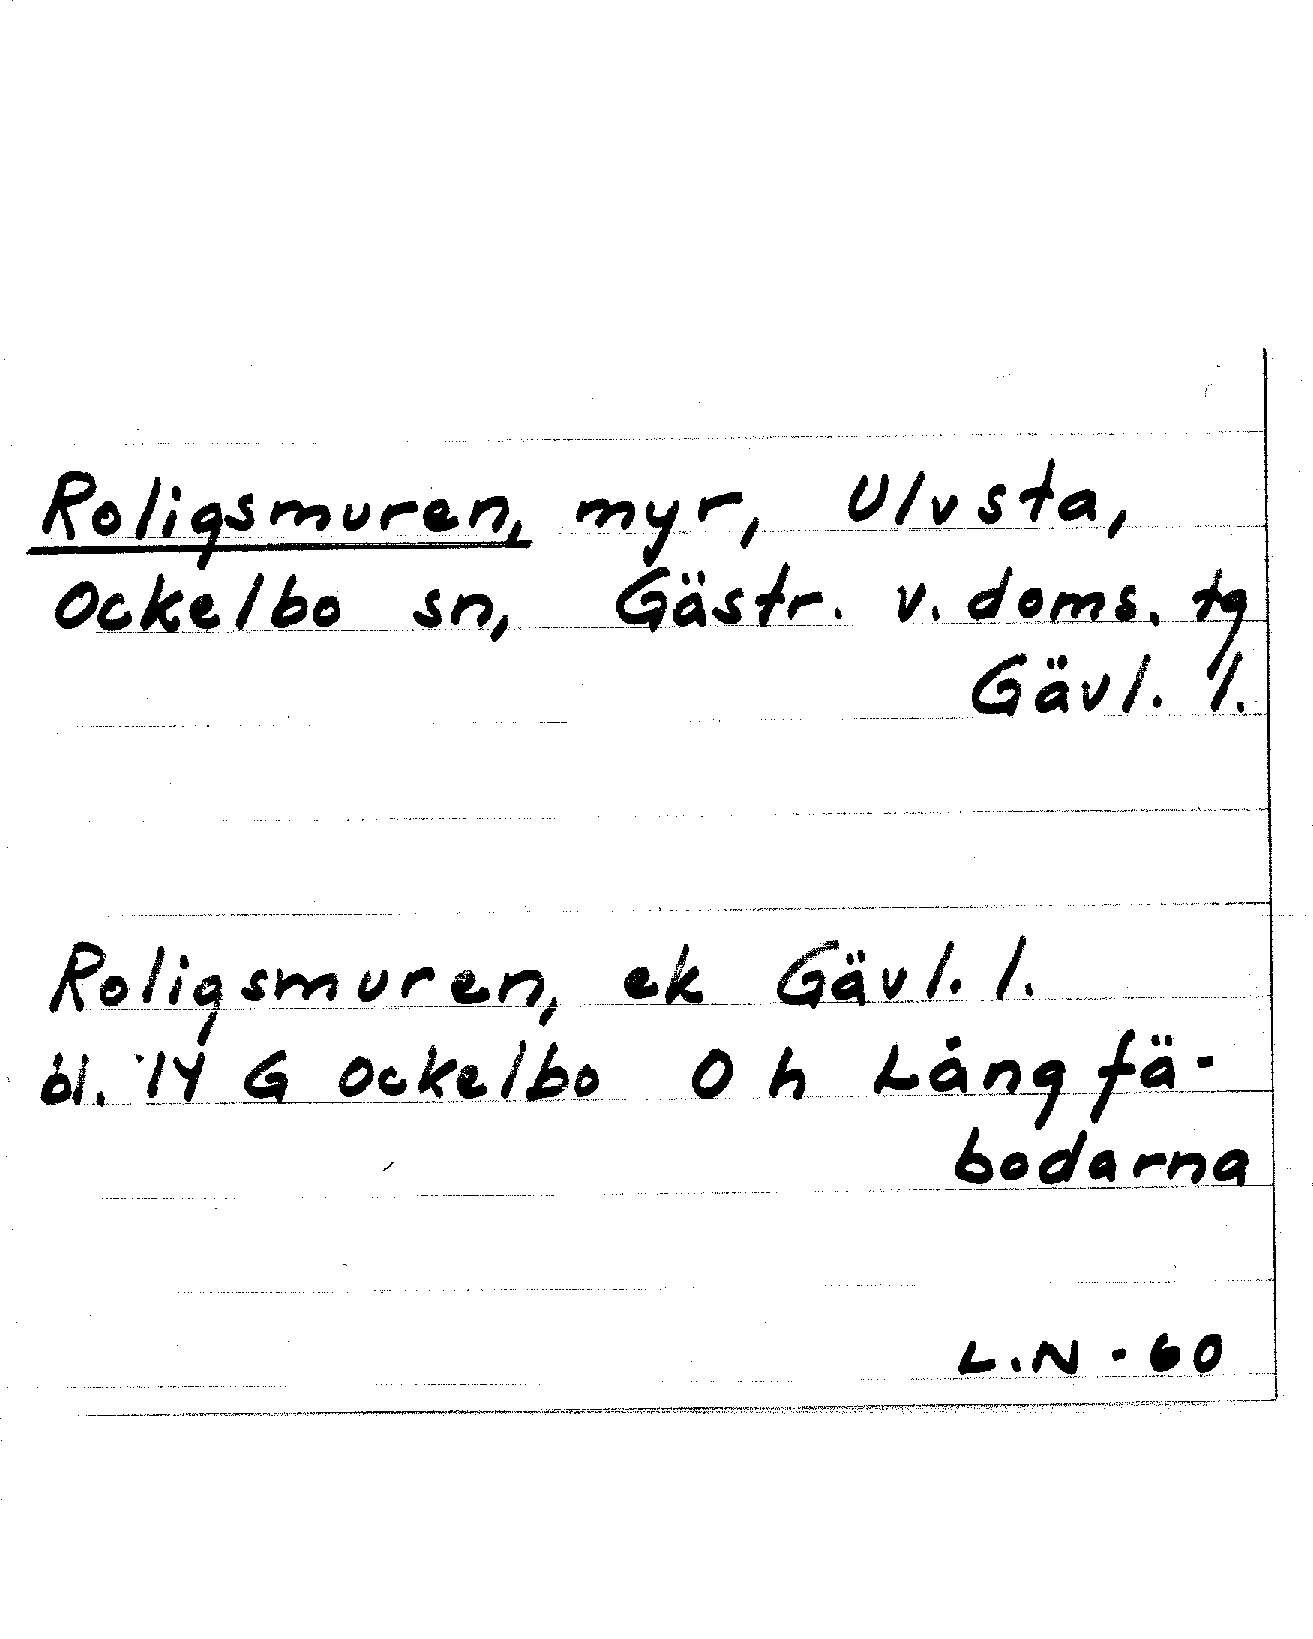 Roligsmuren, myr, Ulvsta,
Ockelbo sn, Gästr. v. doms. tg
Gävl. l.
Roligsmuren, ek Gävl. l.
bl. 14 G Ockelbo O h Långfä-
bodarna
L.N - 60